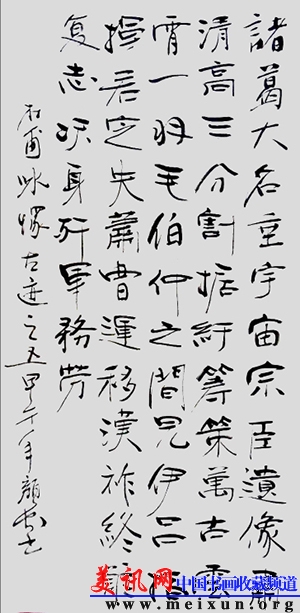 諸葛大名垂宇宙宗臣遺像肅
清高三分割据紆籌策萬古雲
霄一羽毛伯仲之間見伊吕指
揮若定失蕭曹運移漢祚終難
复志决身歼軍務劳
杜甫咏懷古迹之五甲午年顔
美讯网 中国书画收藏频道
www.meixun.org.